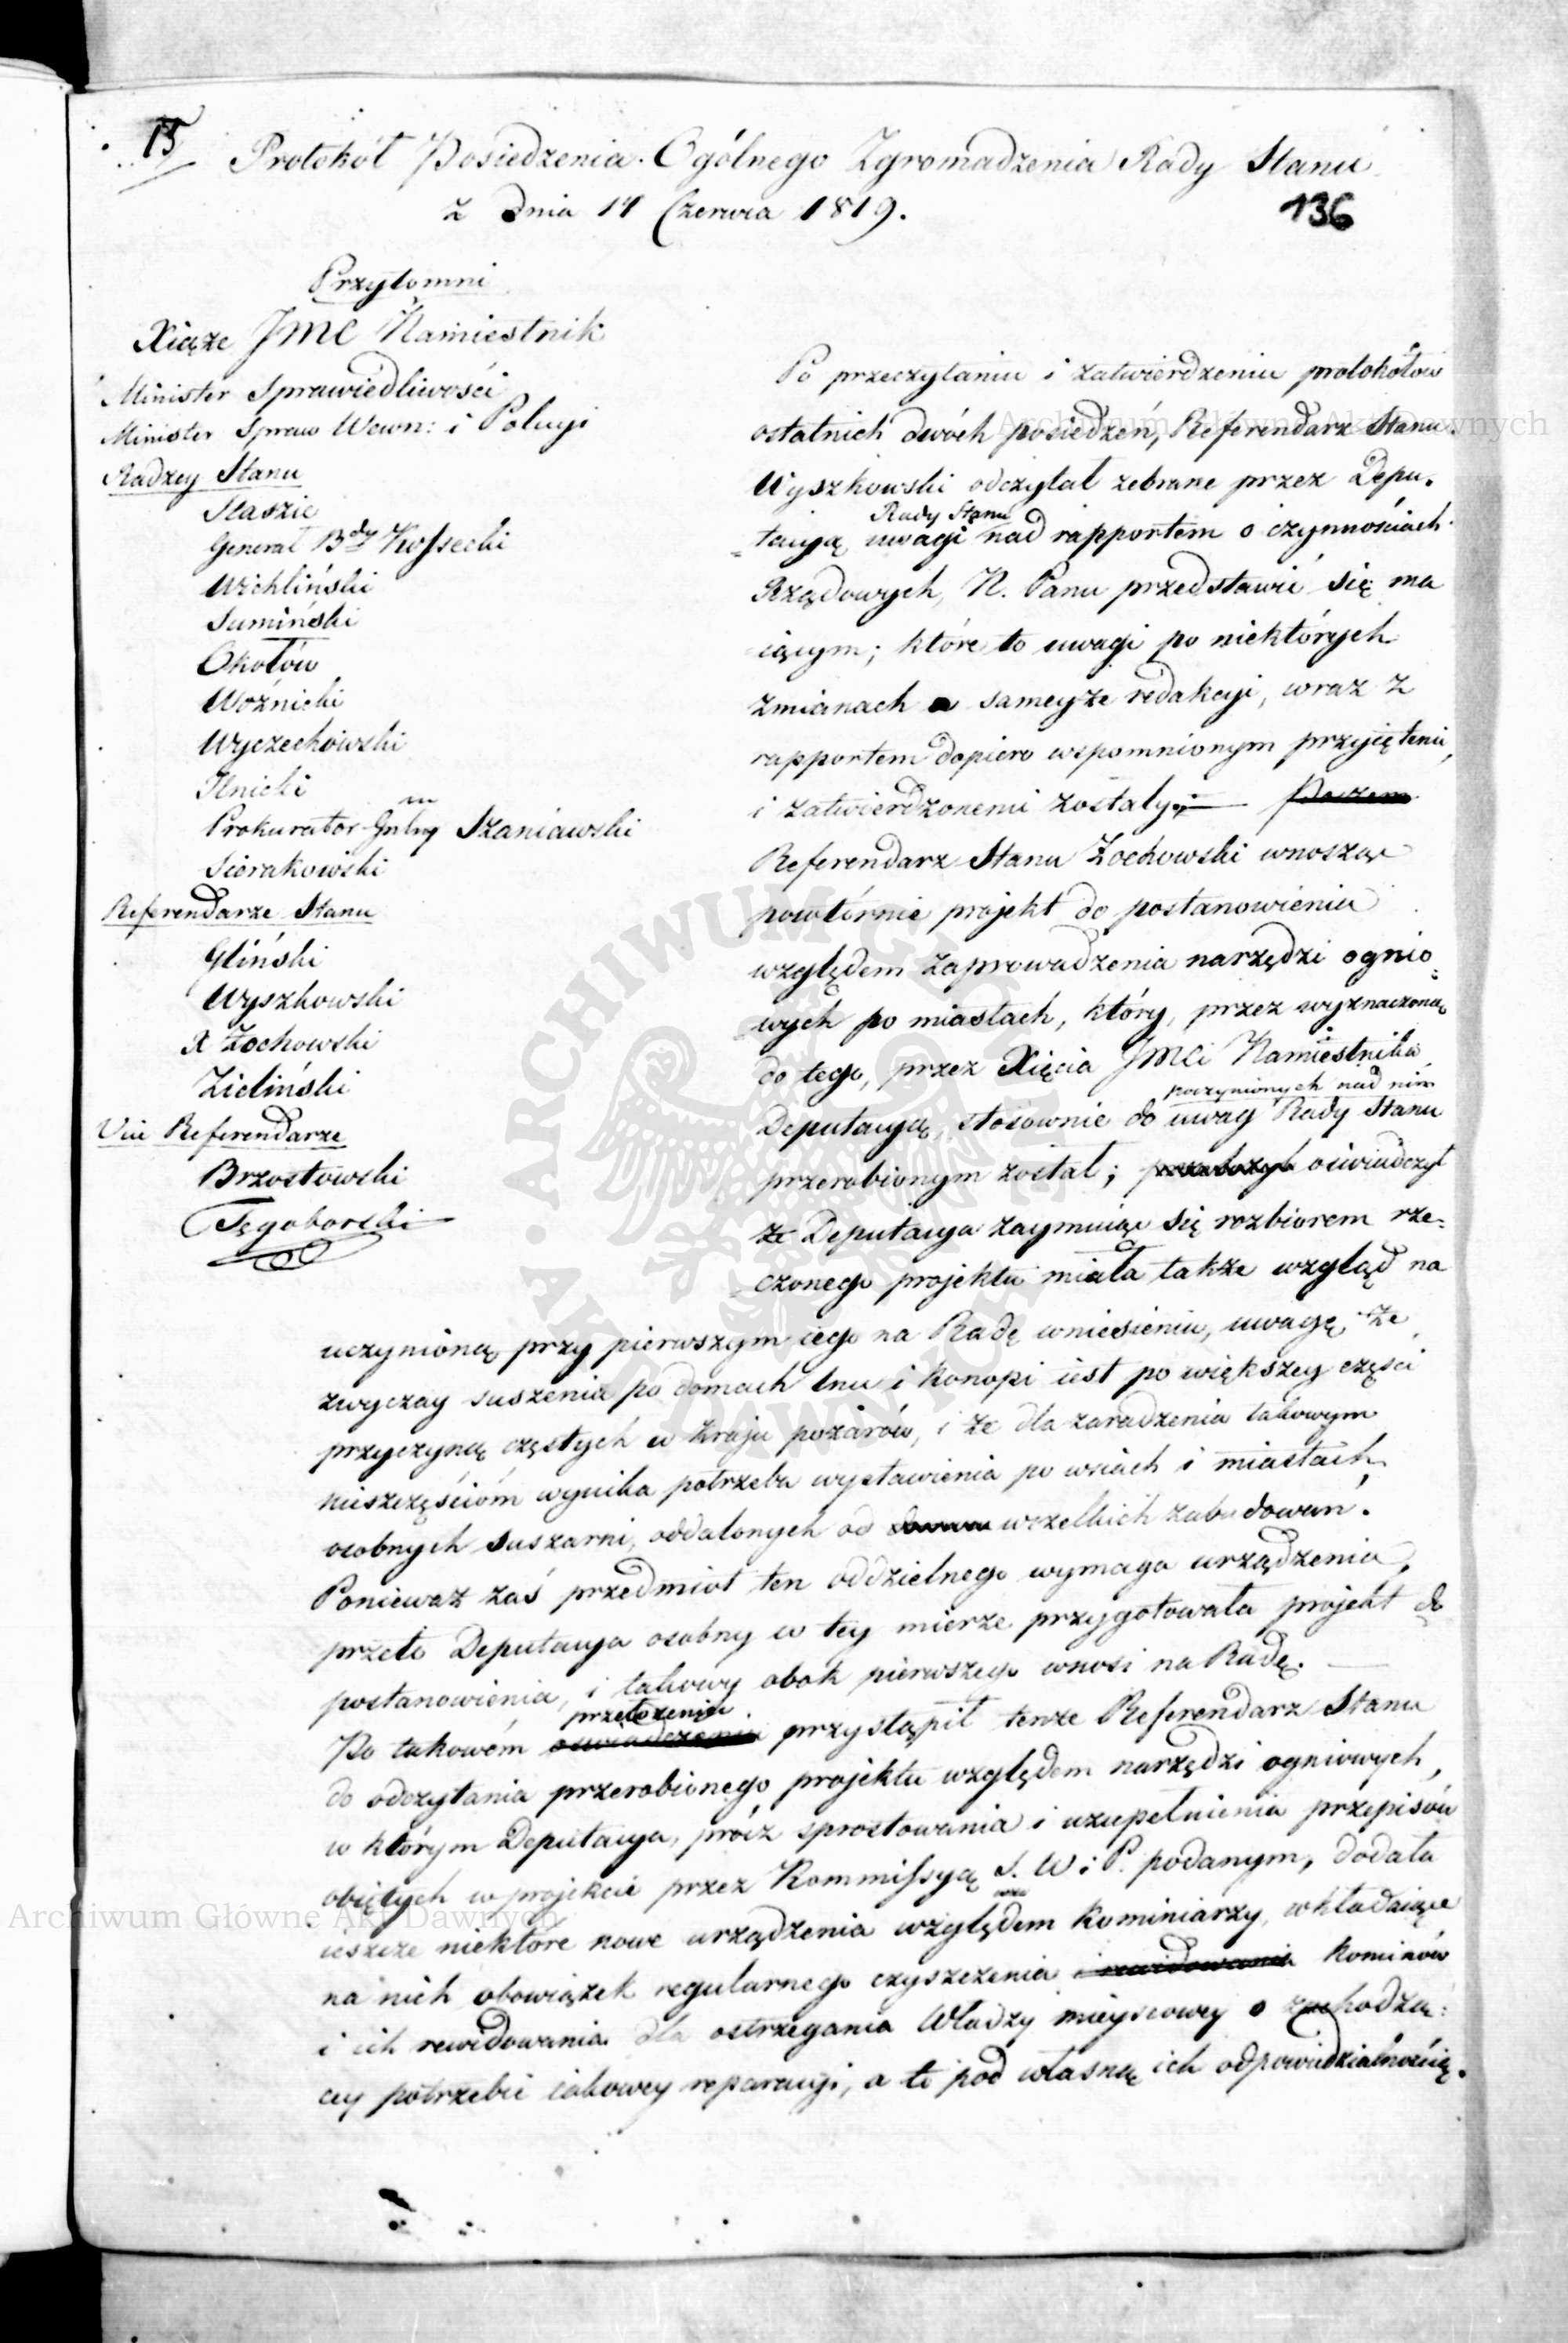 15
Protokół Posiedzenia Ogólnego Zgromadzenia Rady Stanu
z dnia 17 Czerwca 1819.
136
Przytomni
Xiąże JMC Namiestnik
Minister Sprawiedliwości
Minister Spraw Wewn: i Policyi
Radzcy Stanu
Staszic
Generał Bdy Kossecki
Wichliński
Sumiński
Okołów
Woźnicki
Wyczechowski
Ilnicki
Prokurator Gnlny Szaniawski
Sierakowski
Referendarze Stanu
Gliński
Wyszkowski
X Żochowski
Zieliński
Vice Referendarze
Brzostowski
Tęgoborski
Po przeczytaniu i zatwierdzeniu protokołów
ostatnich dwóch posiedzeń, Referendarz Stanu
Wyszkowski odczytał zebrane przez Depu-
Rady Stanu
tacyą uwagi nad rapportem o czynnościach
Rządowych, N. Panu przedstawić się ma
iącym; które to uwagi po niektórych
zmianach w sameyże redakcyi, wraz z
rapportem dopiero wspomnionym przyiętemi,
i zatwierdzonemi zostały. Poczem
Referendarz Stanu Żochowski wnosząc
powtórnie projekt do postanowienia
względem zaprowadzenia narzędzi ognio-
wych po miastach, który, przez wyznaczoną
do tego, przez Xięcia JMCi Namiestnika
poczynionych nad nim
Deputacyą, stosownie do uwag Rady Stanu
przerobionym został; oświadczył
że Deputacya zaymuiąc się rozbiorem rze-
czonego projektu miała także wzgląd na
uczynioną przy pierwszym iego na Radę wniesieniu, uwagę, że
zwyczay suszenia po domach lnu i konopi iest po większey części
przyczyną częstych w kraju pożarów, i że dla zaradzenia takowym
nieszczęściom wynika potrzeba wystawienia po wsiach i miastach,
osobnych suszarni, oddalonych od wszelkich zabudowań.
Ponieważ zaś przedmiot ten oddzielnego wymaga urządzenia,
przeto Deputacya osobny w tey mierze przygotowała projekt do
postanowienia, i takowy obok pierwszego wnosi na Radę.
przełożeniu
Po takowém oświadczeniu przystąpił tenże Referendarz Stanu
do odczytania przerobionego projektu względem narzędzi ogniowych,
w którym Deputacya, prócz sprostowania i uzupełnienia przepisów
obiętych w projekcie przez Kommissyą S. W i P. podanym, dodała
ieszcze niektóre nowe urządzenia względem kominiarzy, wkładaiące
na nich obowiązek regularnego czyszczenia i rewidowania kominów
i ich rewidowania dla ostrzegania Władzy mieyscowey o zachodzą-
cey potrzebie iakowey reparacyi, a to pod własną ich odpowiedzialnością.
Archiwum Główne Akt Dawnych
Archiwum Główne Akt Dawnych
ARCHIWUM GŁÓWNE AKT DAWNYCH